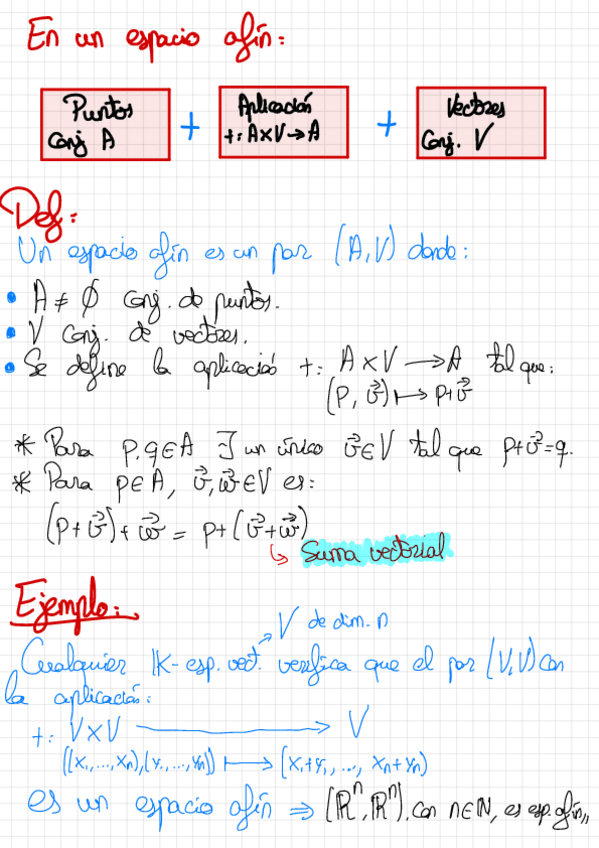 En un espacio afín:
Puntos
Conj A
+
Aplicación
+: A×V→A
+
Vectores
Conj. V
Def:
Un espacio afín es un par (A,V) donde:
• A ≠ ∅ conj. de puntos.
• V conj. de vectores.
• Se define la aplicación +: A×V → A tal que:
(p, v⃗) ↦ p+v⃗
* Para p,q∈A ∃ un único v⃗∈V tal que p+v⃗=q.
* Para p∈A, v⃗,w⃗∈V es:
(p+v⃗)+w⃗ = p+(v⃗+w⃗)
↳ Suma vectorial
Ejemplo:
→ V de dim. n
Cualquier K-esp. vect. verifica que el par (V,V) con
la aplicación:
+: V×V → V
((x₁,...,xₙ),(y₁,...,yₙ)) ↦ (x₁+y₁,..., xₙ+yₙ)
es un espacio afín ⇒ (ℝⁿ,ℝⁿ), con n∈ℕ, es esp. afín,,